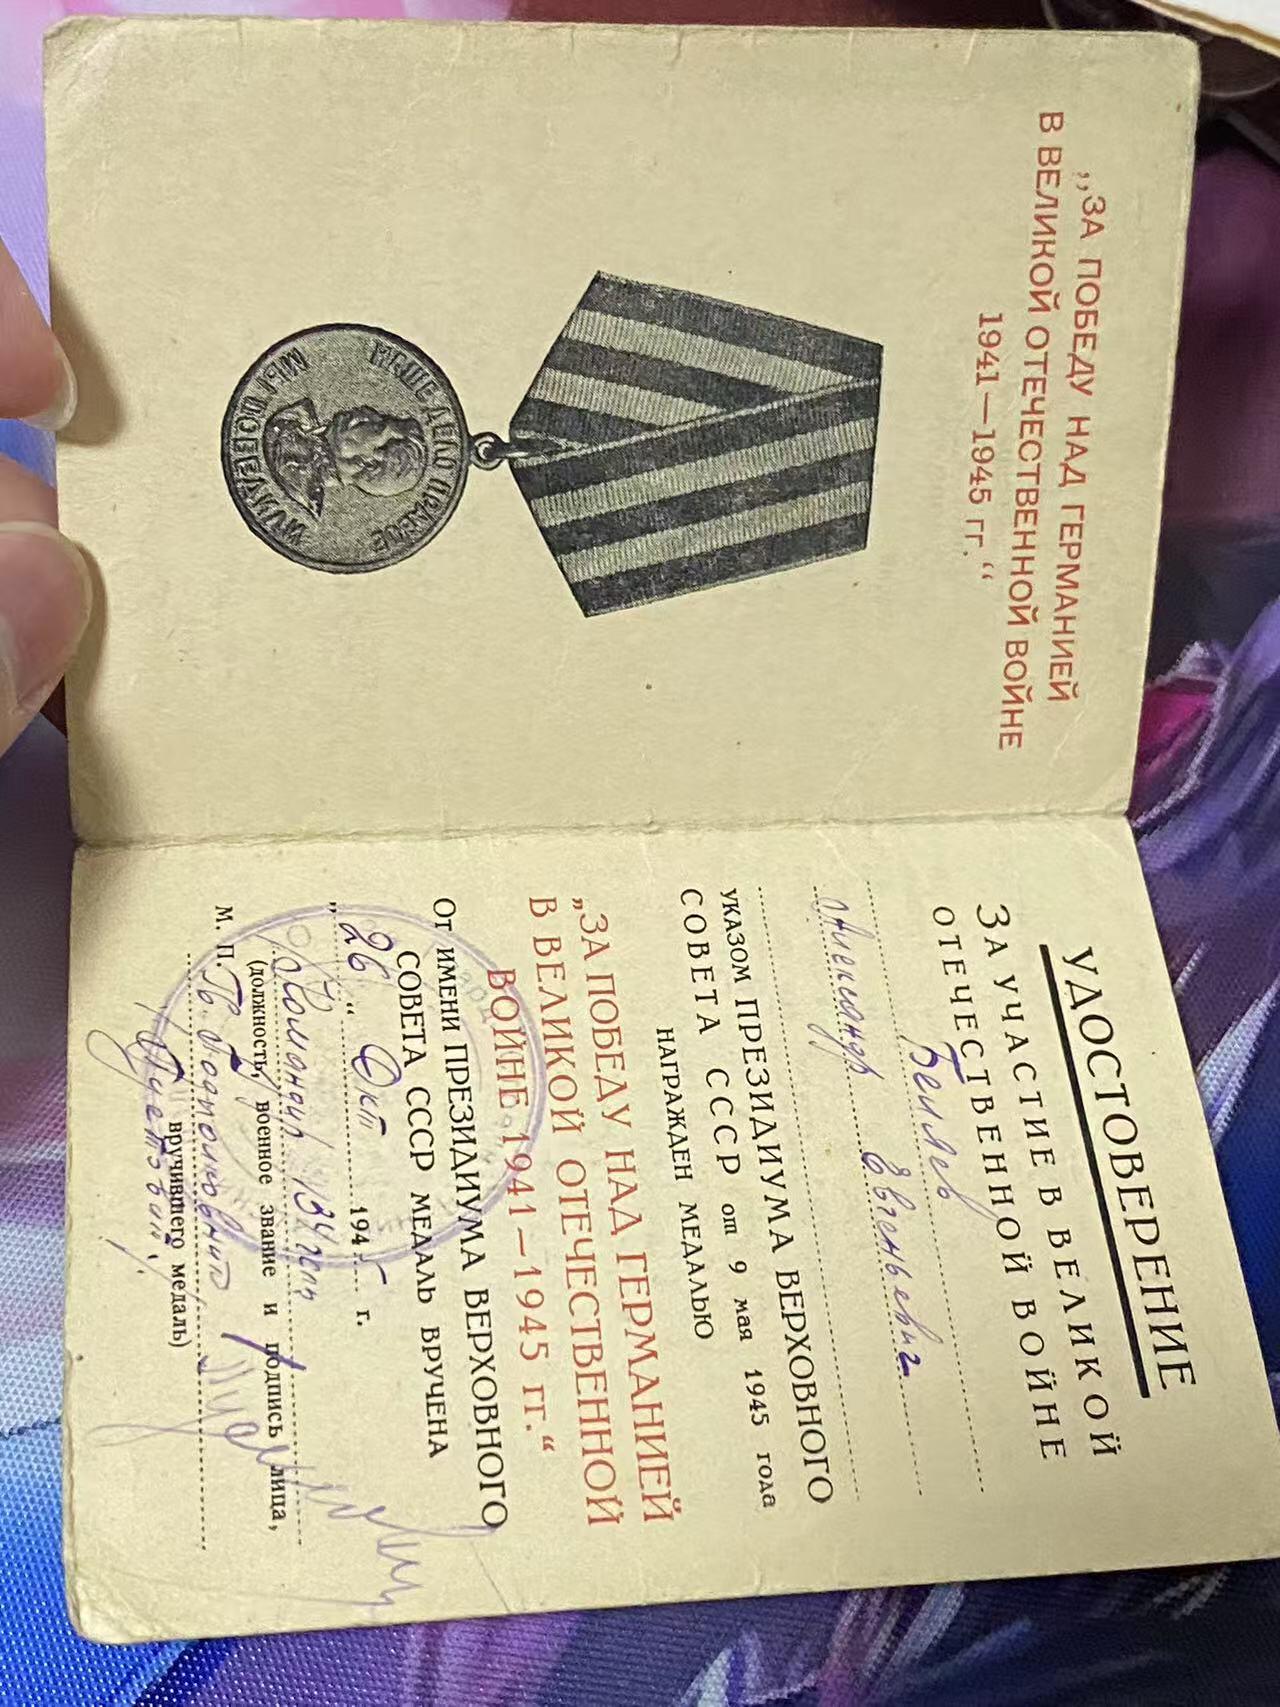 „ЗА ПОБЕДУ НАД ГЕРМАНИЕЙ
В ВЕЛИКОЙ ОТЕЧЕСТВЕННОЙ ВОЙНЕ
1941—1945 гг.“
НАШЕ ДЕЛО ПРАВОЕ
МЫ ПОБЕДИЛИ
УДОСТОВЕРЕНИЕ
ЗА УЧАСТИЕ В ВЕЛИКОЙ
ОТЕЧЕСТВЕННОЙ ВОЙНЕ
Александр Евгеньевич
УКАЗОМ ПРЕЗИДИУМА ВЕРХОВНОГО
СОВЕТА СССР от 9 мая 1945 года
НАГРАЖДЕН МЕДАЛЬЮ
„ЗА ПОБЕДУ НАД ГЕРМАНИЕЙ
В ВЕЛИКОЙ ОТЕЧЕСТВЕННОЙ
ВОЙНЕ 1941—1945 гг.“
От ИМЕНИ ПРЕЗИДИУМА ВЕРХОВНОГО
СОВЕТА СССР МЕДАЛЬ ВРУЧЕНА
„26“ Окт 1945 г.
Командир
(должность, военное звание и подпись лица,
М. П. Гв. подполковник
вручившего медаль)